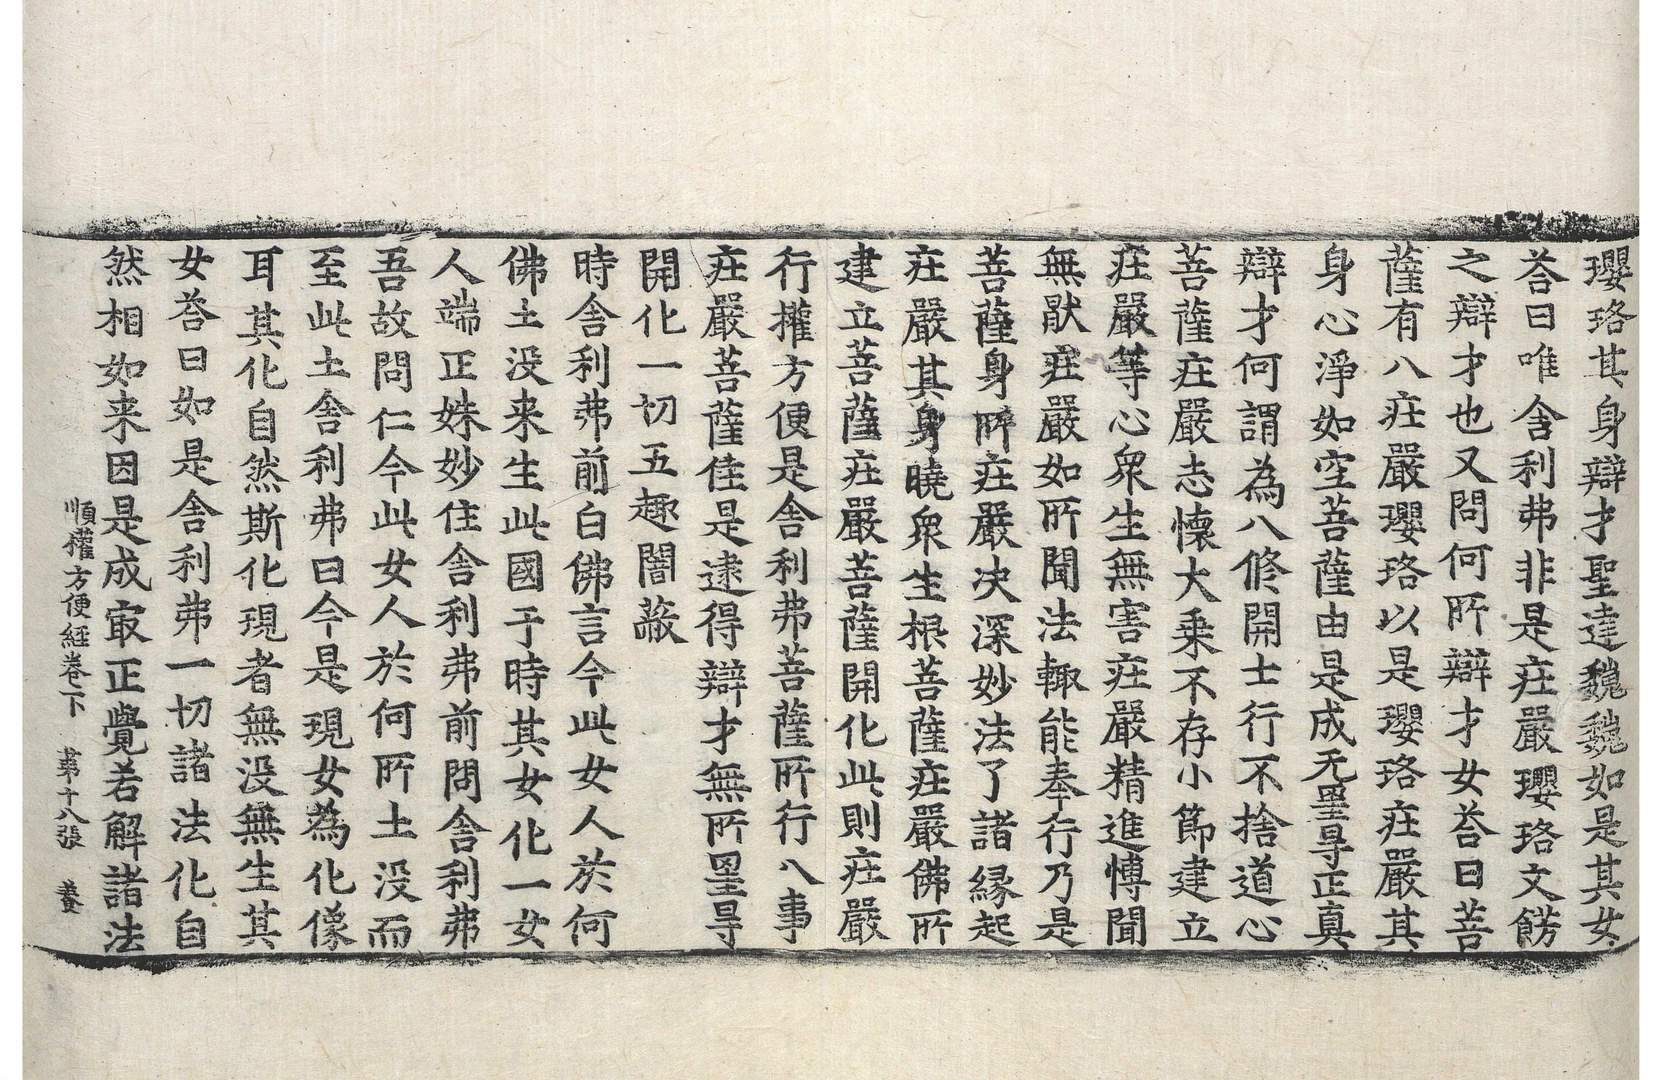 瓔珞其身辯才聖達巍巍如是其女
荅曰唯舍利弗非是庄嚴瓔珞文餝
之辯才也又問何所辯才女荅曰菩
薩有八庄嚴瓔珞以是瓔珞庄嚴其
身心淨如空菩薩由是成无罣㝵正真
辯才何謂為八修開士行不捨道心
菩薩庄嚴志懷大乗不存小節建立
庄嚴等心衆生無害庄嚴精進愽聞
無猒庄嚴如所聞法輙能奉行乃是
菩薩身所庄嚴决深妙法了諸緣起
庄嚴其身曉衆生根菩薩庄嚴佛所
建立菩薩庄嚴菩薩開化此則庄嚴
行權方便是舍利弗菩薩所行八事
庄嚴菩薩住是逮得辯才無所罣㝵
開化一切五趣闇蔽
時舍利弗前白佛言今此女人於何
佛土没来生此國于時其女化一女
人端正姝妙住舍利弗前問舍利弗
吾故問仁今此女人於何所土没而
至此土舍利弗曰今是現女為化像
耳其化自然斯化現者無没無生其
女荅曰如是舍利弗一切諸法化自
然相如来因是成㝡正覺若解諸法
順權方便經卷下　第十八張　養